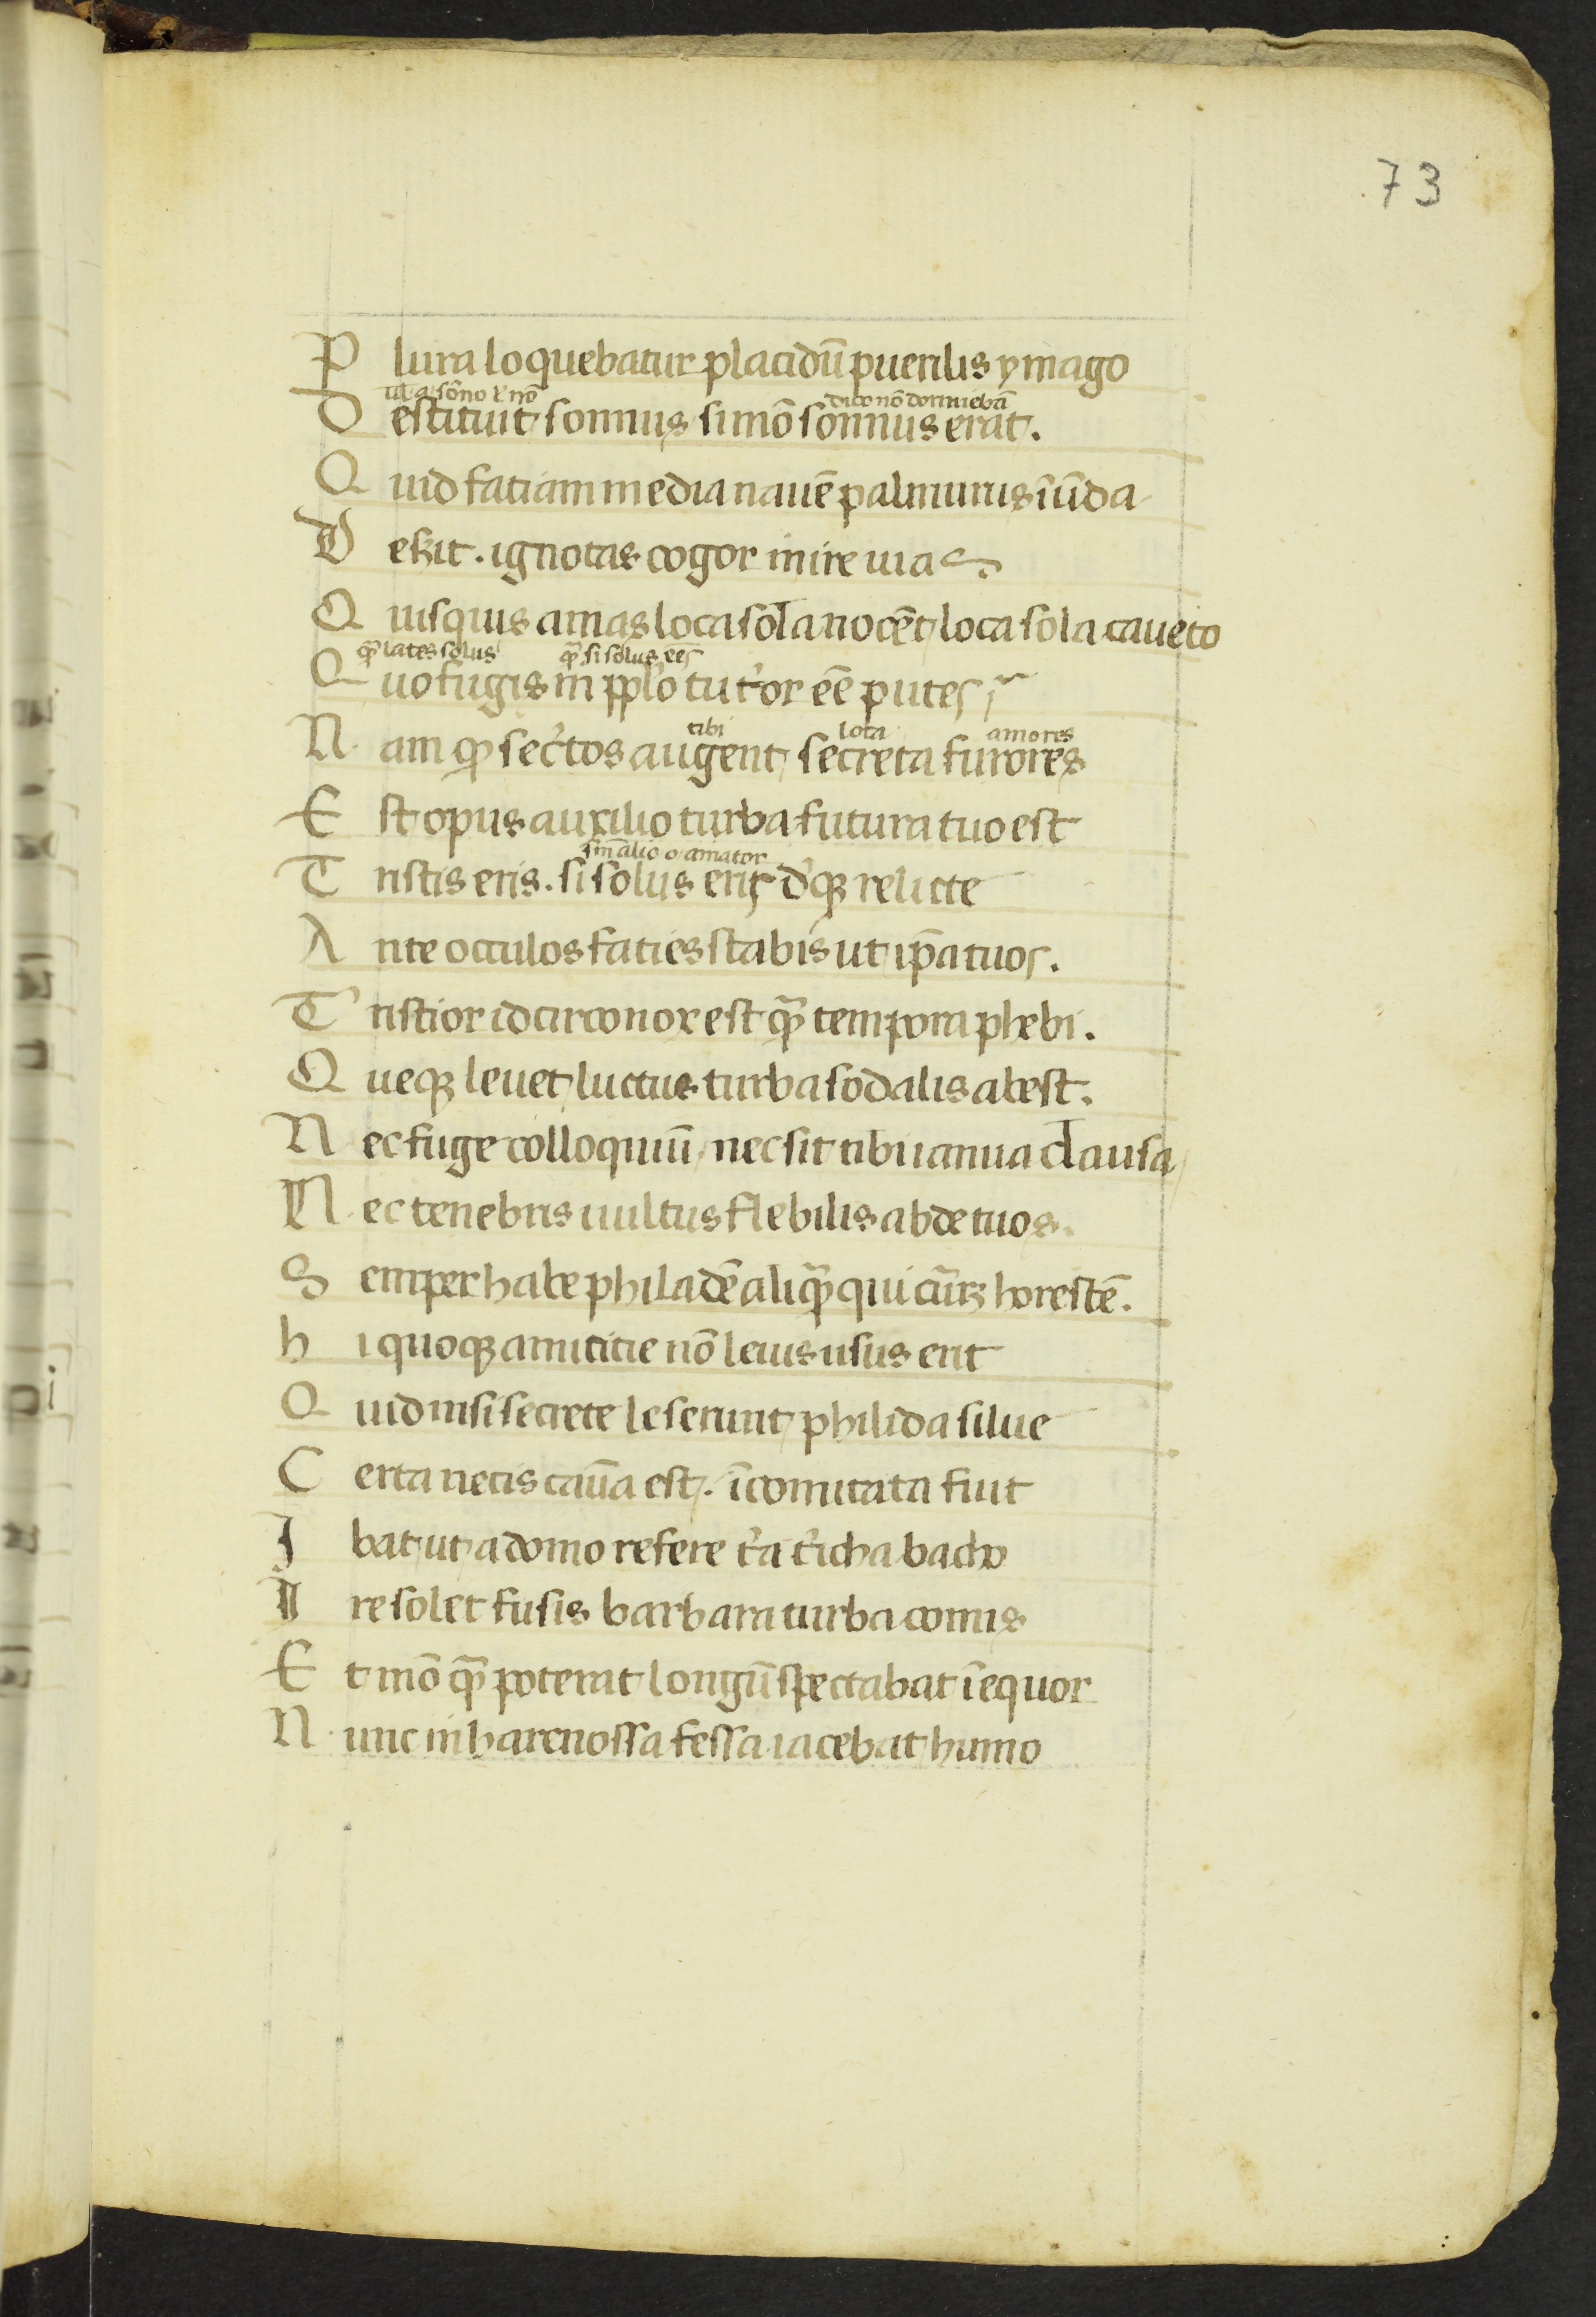 73
P lura loquebatur placidū puerilis ymago
D estituit somnus si mō somnus erat.
dico nō dormiebā
Q uid fatiam media nauē palinurus ī ūda
D eẜit. ignotas cogor inire uias
Q uisquis amas loca sola nocēt loca sola caueto
q̄ lates solus q̄ si solus ēes
Q uo fugis in pplō tut'or eē putes
tibi loca amores
N am q̄ sec'tos augent secreta furores
E st opus auxilio turba futura tuo est
sin alio o amator
T ristis eris. si solus eris d'qꝫ relicte
A nte occulos faties stabis ut ip̄a tuos.
T ristior idcirco nox est q̄ tempora phebi.
Q ueqꝫ leuet luctus turba sodalis abest.
N ec fuge colloquiū nec sit tibi ianua clausa
N ec tenebris uultus flebilis abde tuos.
S emper habe philadē aliq̄ qui cūrꝫ horestē.
h i quoqꝫ amicitie nō leuis usus erit
Q uid nisi secrete leserunt philida silue
C erta necis cau̅a est. īcomitata fuit
I bat ut adomo refere t'a t'icha bacho
I re solet fusis barbara turba comis
E t mō q̄ poterat longū spectabat ī equor
N unc in harenossa fessa iacebat humo